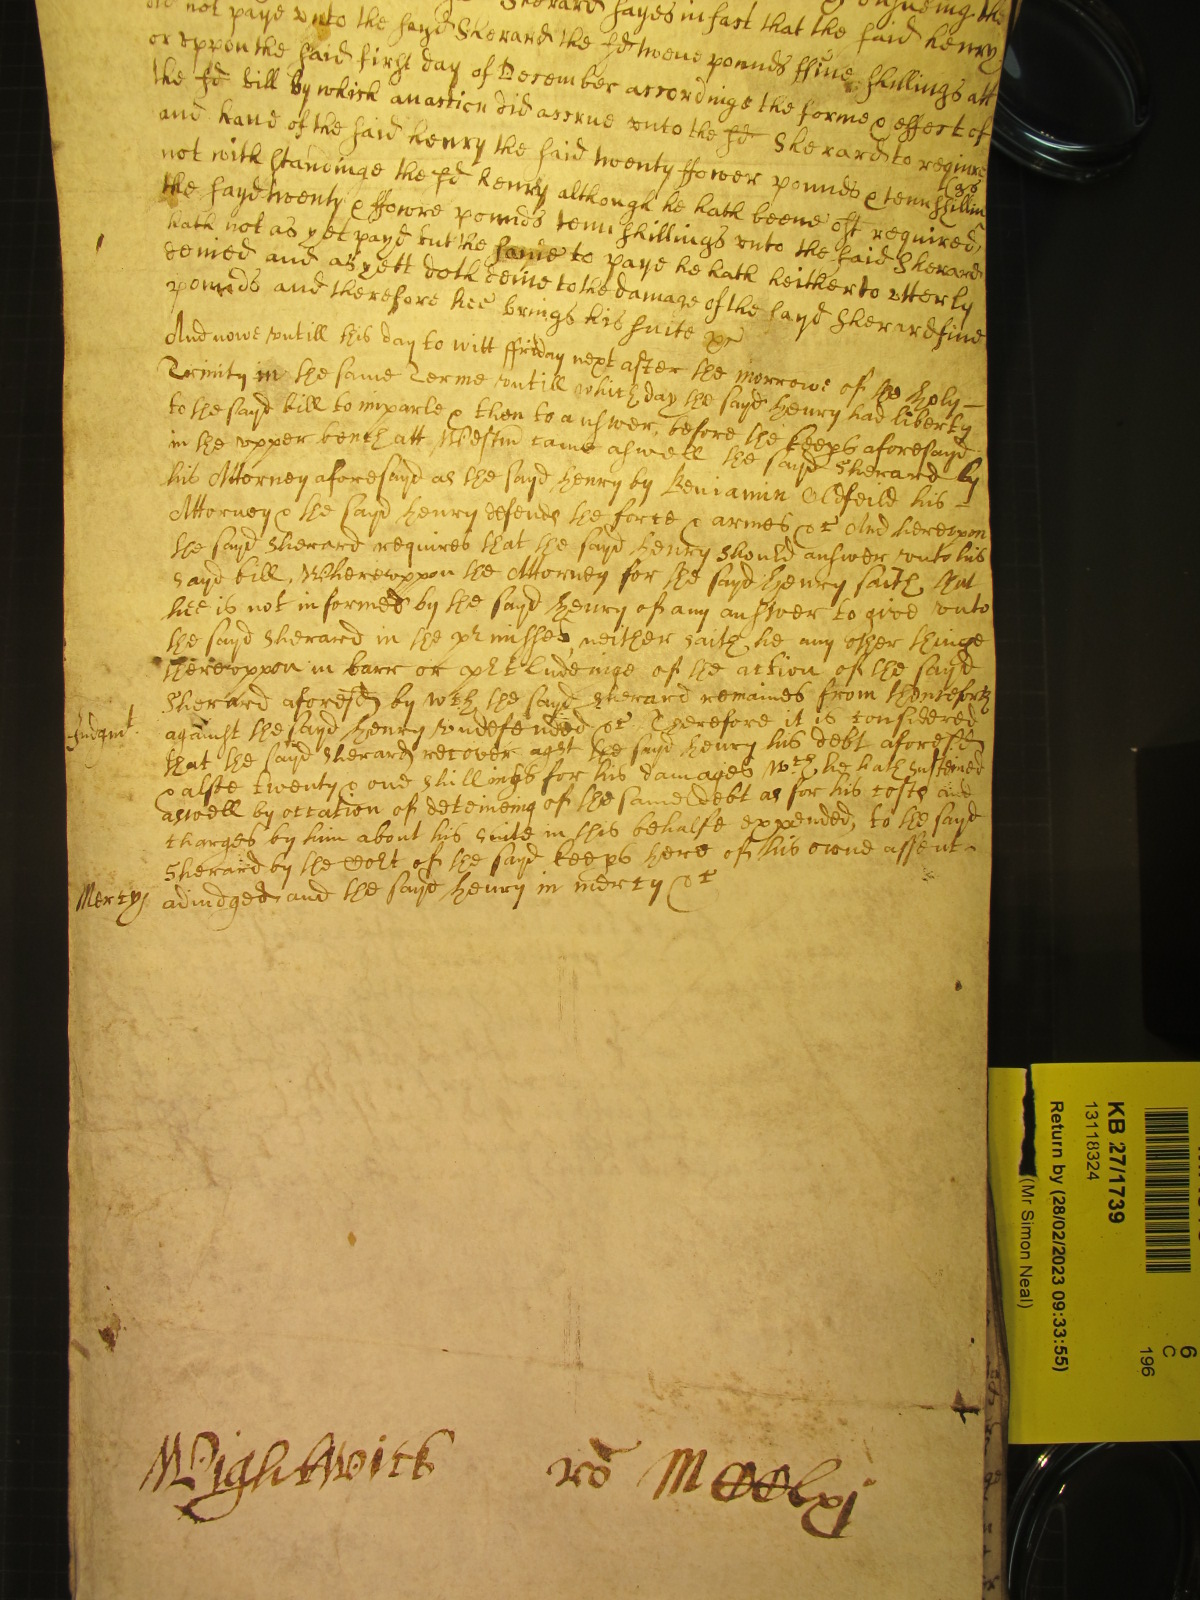 Sherard sayes in fact that the said Henry
did not paye unto the sayd Sherard the sd twene pounds ffive shillings att
or uppon the said first day of December accordinge the forme & effect of
the sd bill by which an action did accrue unto the sd Sherard to require
and have of the said Henry the said twenty ffower pounds & tenn shillin
gs
not with standinge the sd Henry although he hath beene oft required,
the sayd twenty & ffowre pounds tenn shillings unto the said Sherard
hath not as yet payd but the same to paye he hath heitherto utterly
denied and as yett doth denie to the damage of the sayd Sherard five
pounds and therefore hee brings his suite &c
And nowe untill this day to witt ffriday next after the morrowe of the holy
Trinity in the same Terme untill which day the sayd Henry had liberty
to the sayd bill to imparle & then to answer, before the keeps aforesayd
in the upper bench att Westm came aswell the sayd Sherard by
his Attorney aforesayd as the sayd Henry by Beniamin Oldfeild his
Attorney & the sayd Henry defends the force & armes &c And hereupon
the sayd Sherard requires that the sayd Henry should answer unto his
sayd bill, Whereuppon the Attorney for the sayd Henry saith that
hee is not informed by the sayd Henry of any answer to give unto
the sayd Sherard in the prmisses, neither saith he any other thinge
thereuppon in barr or precludeinge of the action of the sayd
Sherard aforesd by wch the sayd Sherard remaines from thenceforth
against the sayd Henry undefended &c Therefore it is considered
Iudgmt
that the sayd Sherard recover agt the sayd Henry his debt aforesd
& alsoe twenty & one shillings for his damages wch he hath susteined
aswell by occation of deteineing of the same debt as for his costs and
charges by him about his suite in this behalfe expended, to the sayd
Sherard by the Cort of the sayd keeps here of his owne assent
Mercy adiudged and the sayd Henry in mercy &c
Wightwick ro MCClxj
KB 27/1739
13118324
Return by (28/02/2023 09:33:55)
(Mr Simon Neal)
6
C
196